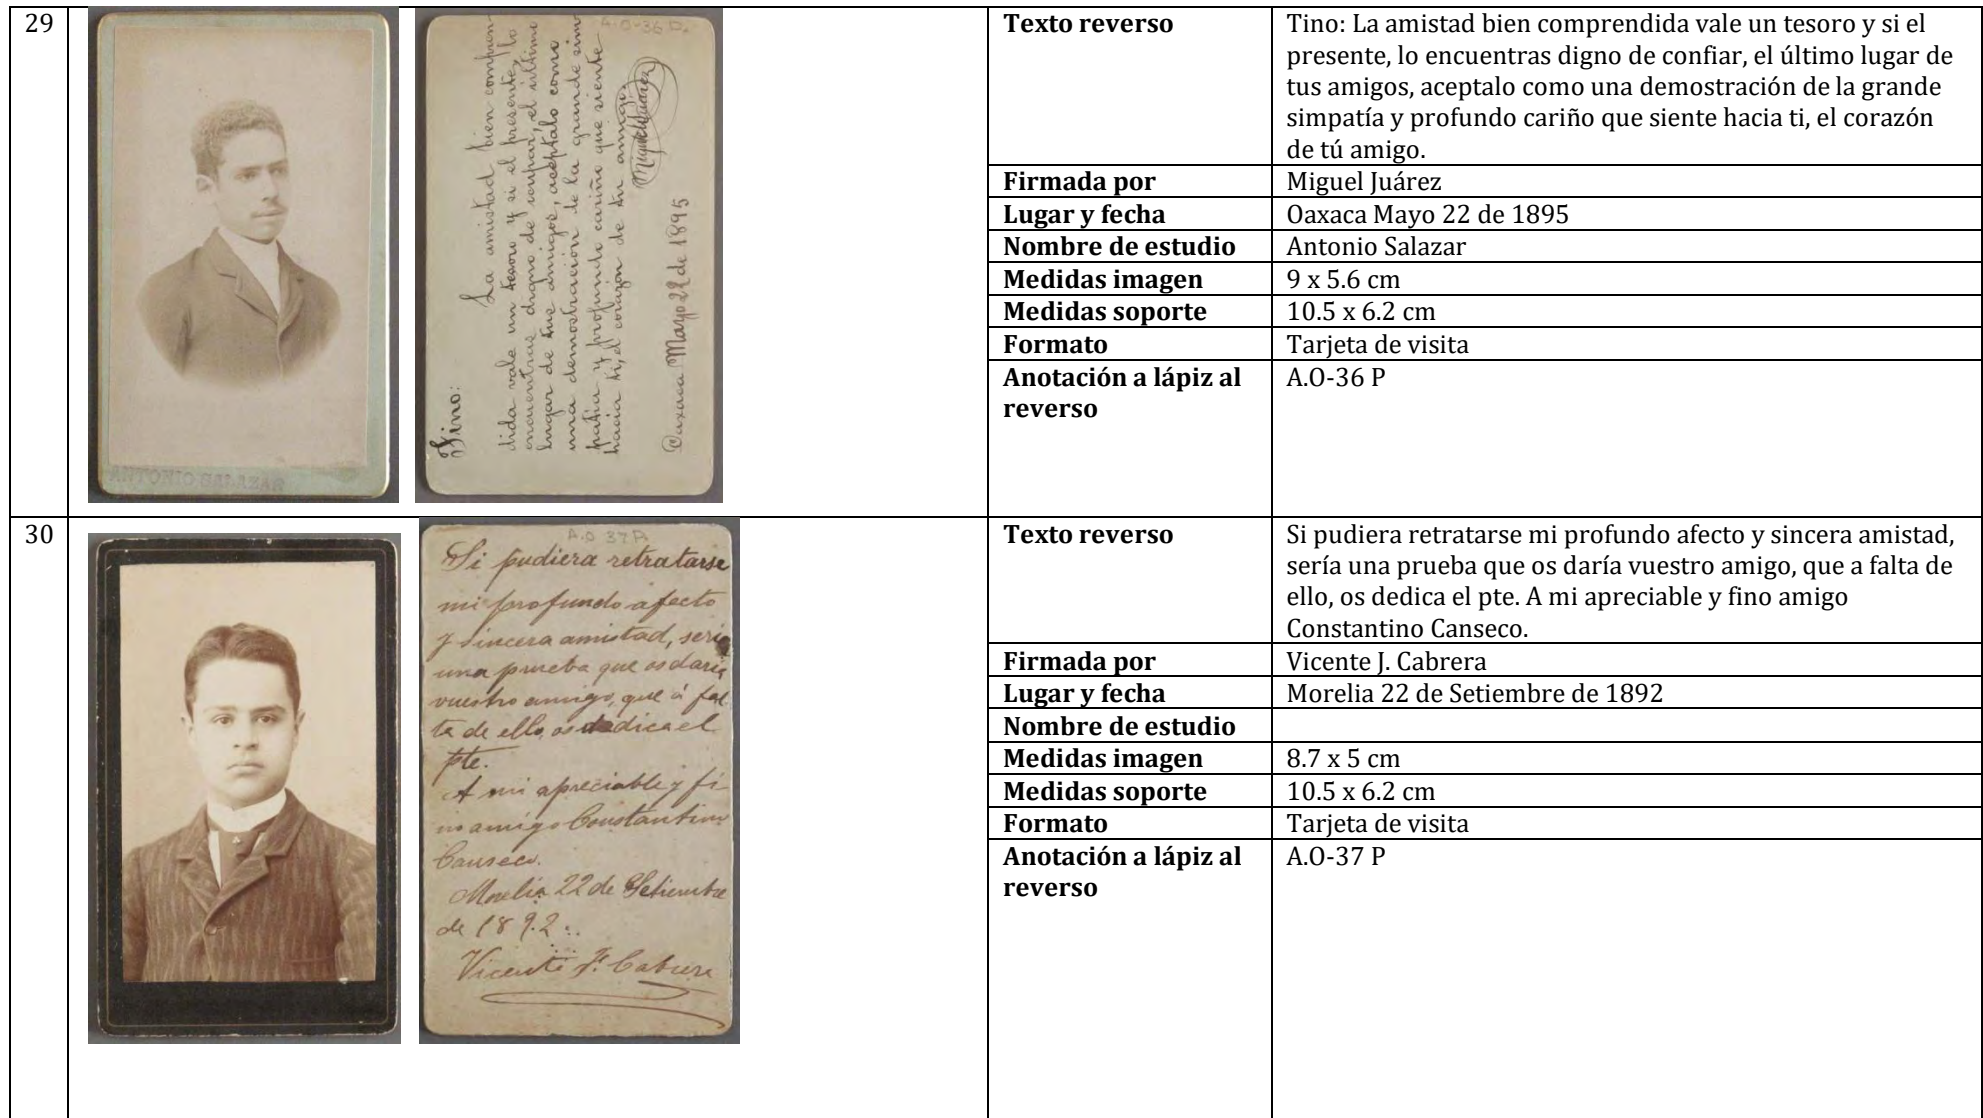 29
ANTONIO SALAZAR
A.O-36 P.
Tino:
La amistad bien compren
dida vale un tesoro y si el presente, lo
encuentras digno de ocupar, el último
lugar de tus amigos, aceptalo como
una demostración de la grande sim
patia y profundo cariño que siente
hacia ti, el corazón de tu amigo.
Miguel Juárez
Oaxaca Mayo 22 de 1895
Texto reverso
Tino: La amistad bien comprendida vale un tesoro y si el
presente, lo encuentras digno de confiar, el último lugar de
tus amigos, aceptalo como una demostración de la grande
simpatía y profundo cariño que siente hacia ti, el corazón
de tú amigo.
Firmada por
Miguel Juárez
Lugar y fecha
Oaxaca Mayo 22 de 1895
Nombre de estudio
Antonio Salazar
Medidas imagen
9 x 5.6 cm
Medidas soporte
10.5 x 6.2 cm
Formato
Tarjeta de visita
Anotación a lápiz al
reverso
A.O-36 P
30
A.O 37 P
Si pudiera retratarse
mi profundo afecto
y sincera amistad, seria
una prueba que os daria
vuestro amigo, que á fal
ta de ello, os dedica el
pte.
A mi apreciable y fi
no amigo Constantino
Canseco.
Morelia 22 de Setiembre
de 1892.
Vicente J. Cabrera
Texto reverso
Si pudiera retratarse mi profundo afecto y sincera amistad,
sería una prueba que os daría vuestro amigo, que a falta de
ello, os dedica el pte. A mi apreciable y fino amigo
Constantino Canseco.
Firmada por
Vicente J. Cabrera
Lugar y fecha
Morelia 22 de Setiembre de 1892
Nombre de estudio
Medidas imagen
8.7 x 5 cm
Medidas soporte
10.5 x 6.2 cm
Formato
Tarjeta de visita
Anotación a lápiz al
reverso
A.O-37 P